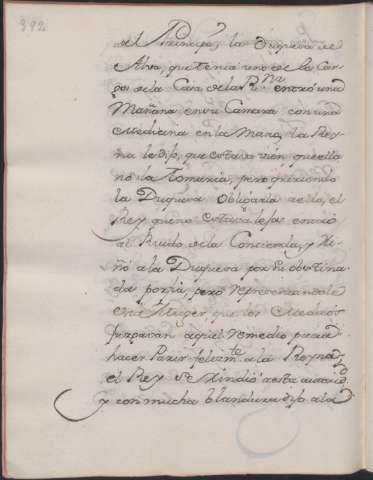 392
del Principe, la Duquesa de
Alva, que tenia uno de los Car-
gos de la Casa de la Rna entró una
Mañana en su Camara con una
Medicina en la Mano, la Rey-
na le dijo, que estava vien, que ella
no la tomaria, pero queriendo
la Duquesa obligarla a ello, el
Rey que no estava lejos entró
al Ruido de la Contienda, y Ri-
ñó a la Duquesa por su obstina-
da porfia, pero representandole
esta Muger, que los Medicos
juzgavan aquel remedio para
hacer Parir felizmte a la Reyna,
el Rey se Rindió a esta autorid
y con mucha blandura dijo a la